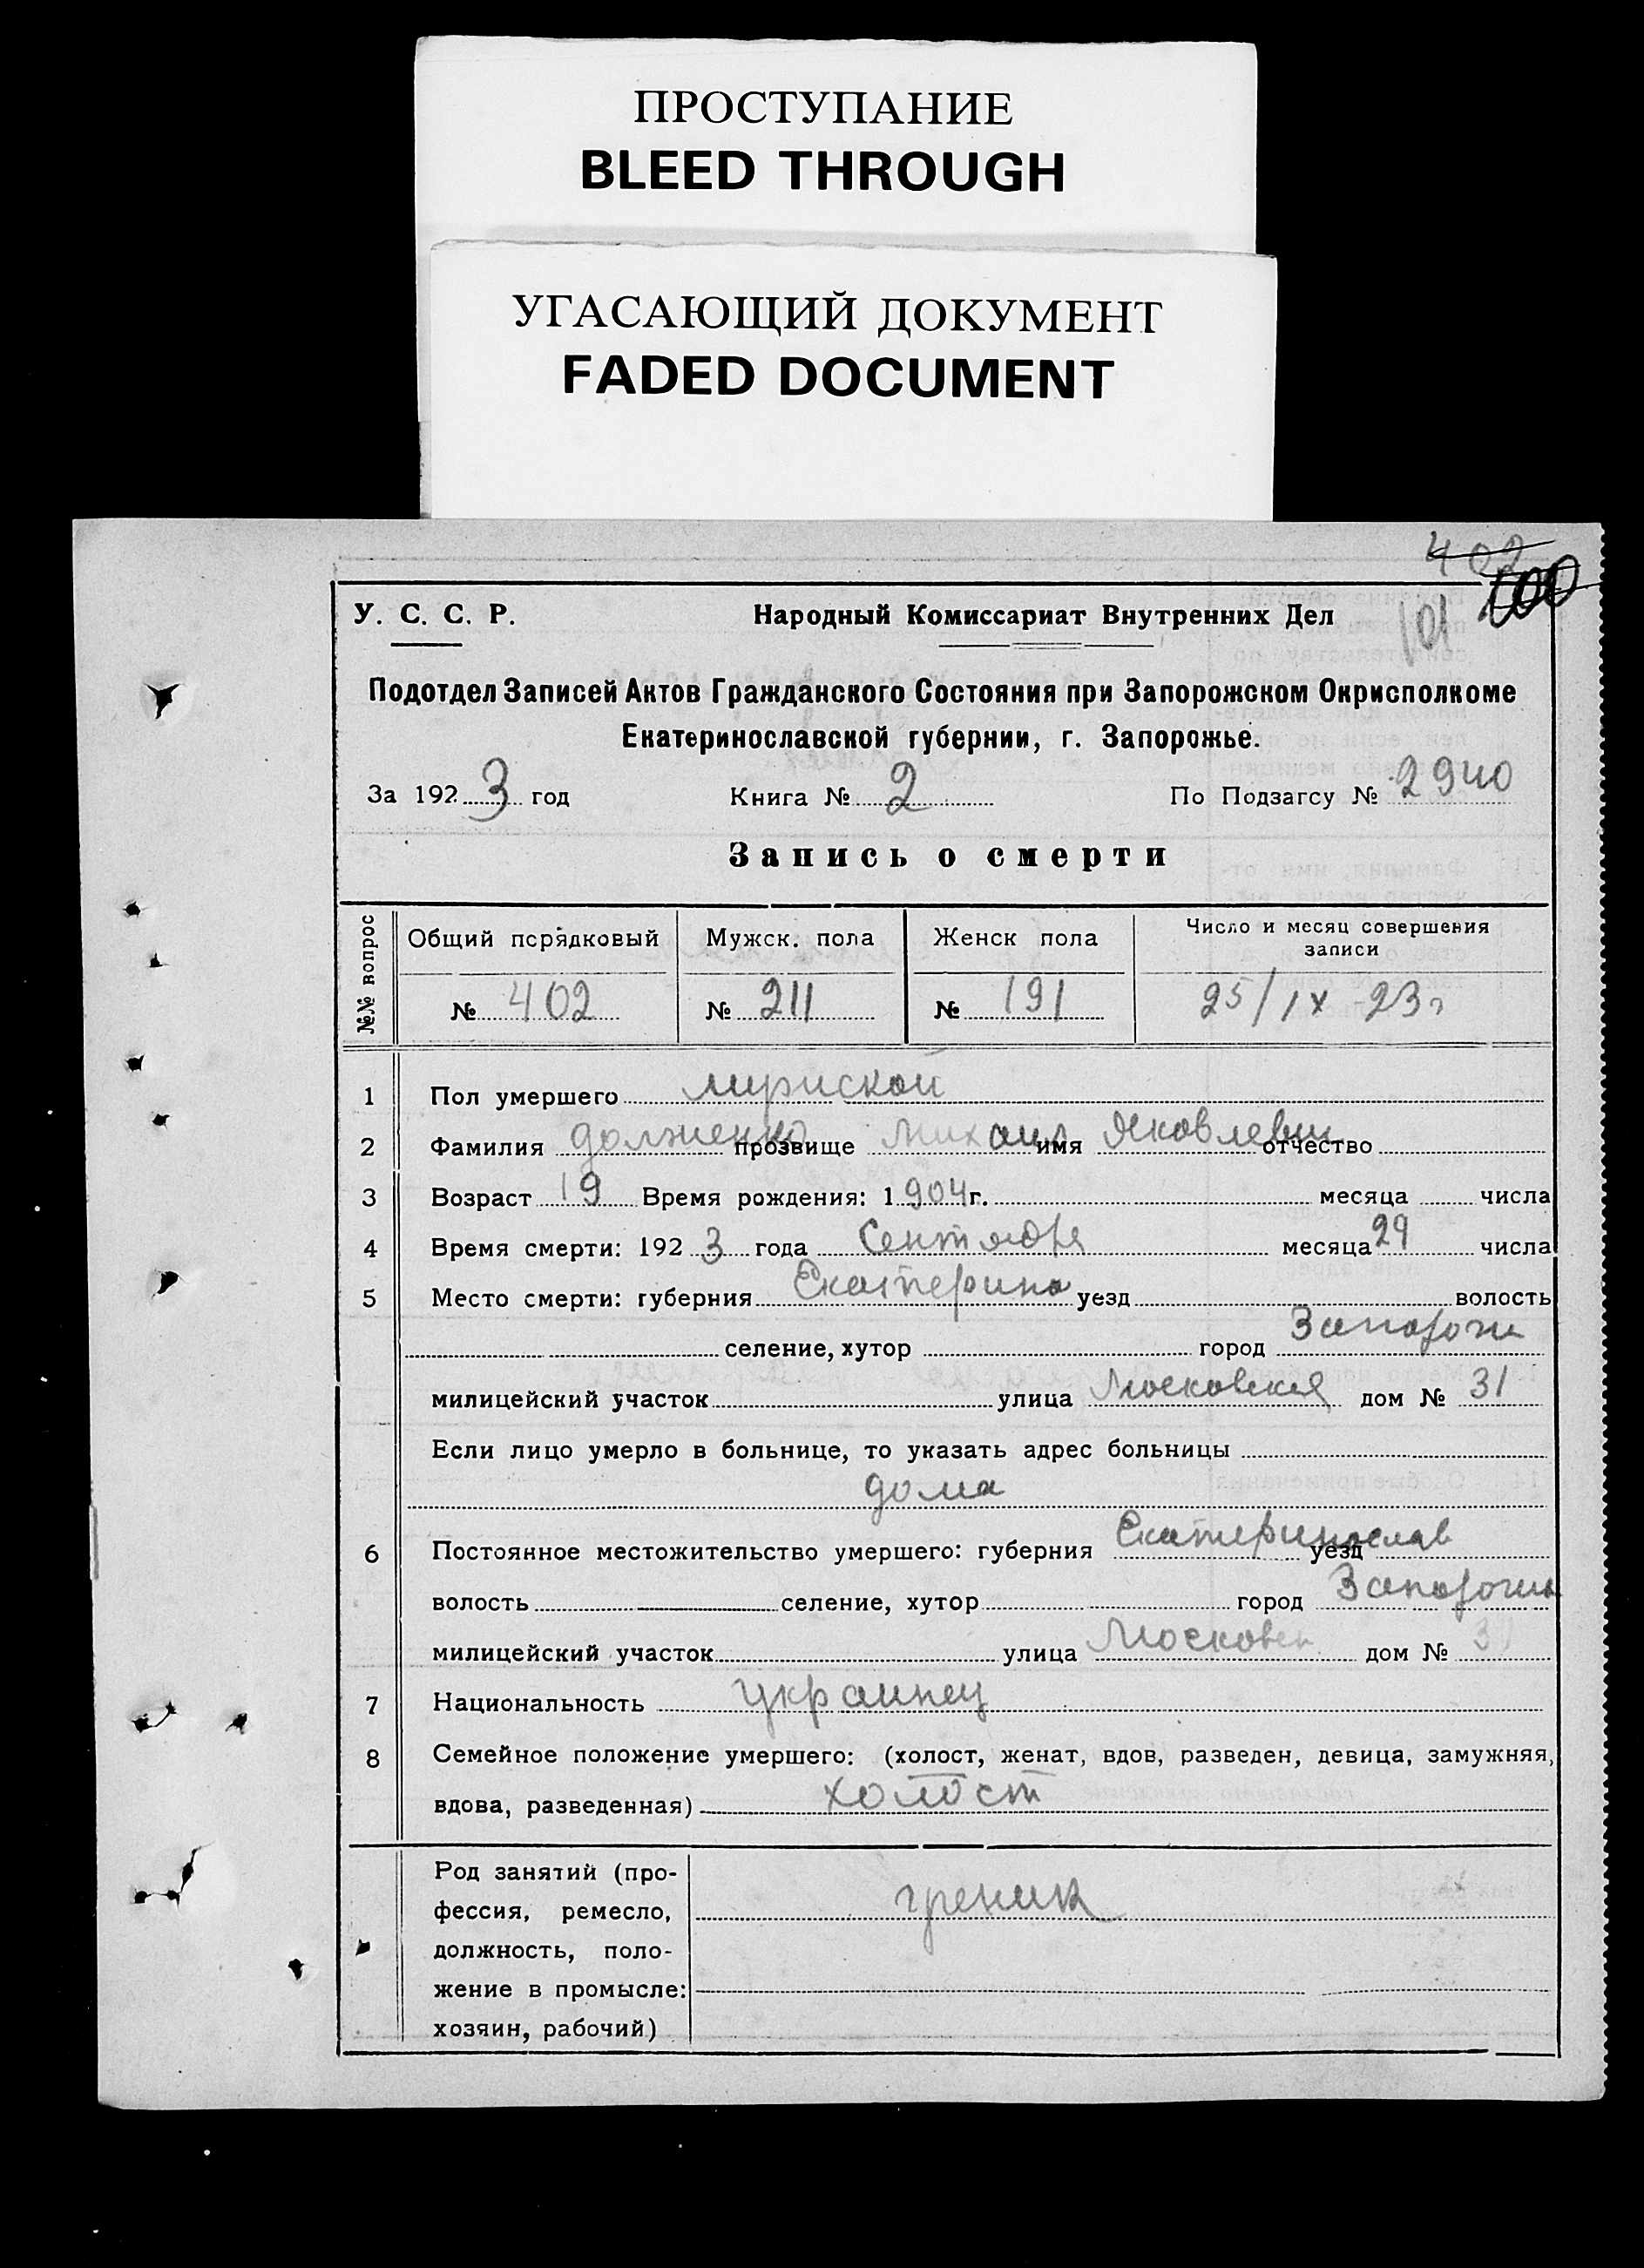 ПРОСТУПАНИЕ
BLEED THROUGH
УГАСАЮЩИЙ ДОКУМЕНТ
FADED DOCUMENT
402
100
101
У. С. С. Р. Народный Комиссариат Внутренних Дел
Подотдел Записей Актов Гражданского Состояния при Запорожском Окрисполкоме
Екатеринославской губернии, г. Запорожье.
За 1923 год Книга № 2 По Подзагсу № 2940
Запись о смерти
№№ вопрос
Общий псрядковый Мужск. пола Женск пола Число и месяц совершения
записи
№ 402 № 211 № 191 25/IX 23 г
1 Пол умершего
2 Фамилия Долженко прозвище Михаил имя Яковлевич отчество
3 Возраст 19 Время рождения: 1904 г. месяца числа
4 Время смерти: 1923 года Сентября месяца 29 числа
5 Место смерти: губерния Екатерино уезд волость
селение, хутор город Запорож
милицейский участок улица Московская дом № 31
Если лицо умерло в больнице, то указать адрес больницы
дома
6 Постоянное местожительство умершего: губерния Екатеринослав уезд
волость селение, хутор город Запорожье
милицейский участок улица Московск дом № 31
7 Национальность украинец
8 Семейное положение умершего: (холост, женат, вдов, разведен, девица, замужняя,
вдова, разведенная) холост
Род занятий (про-
фессия, ремесло,
должность, поло-
жение в промысле:
хозяин, рабочий)